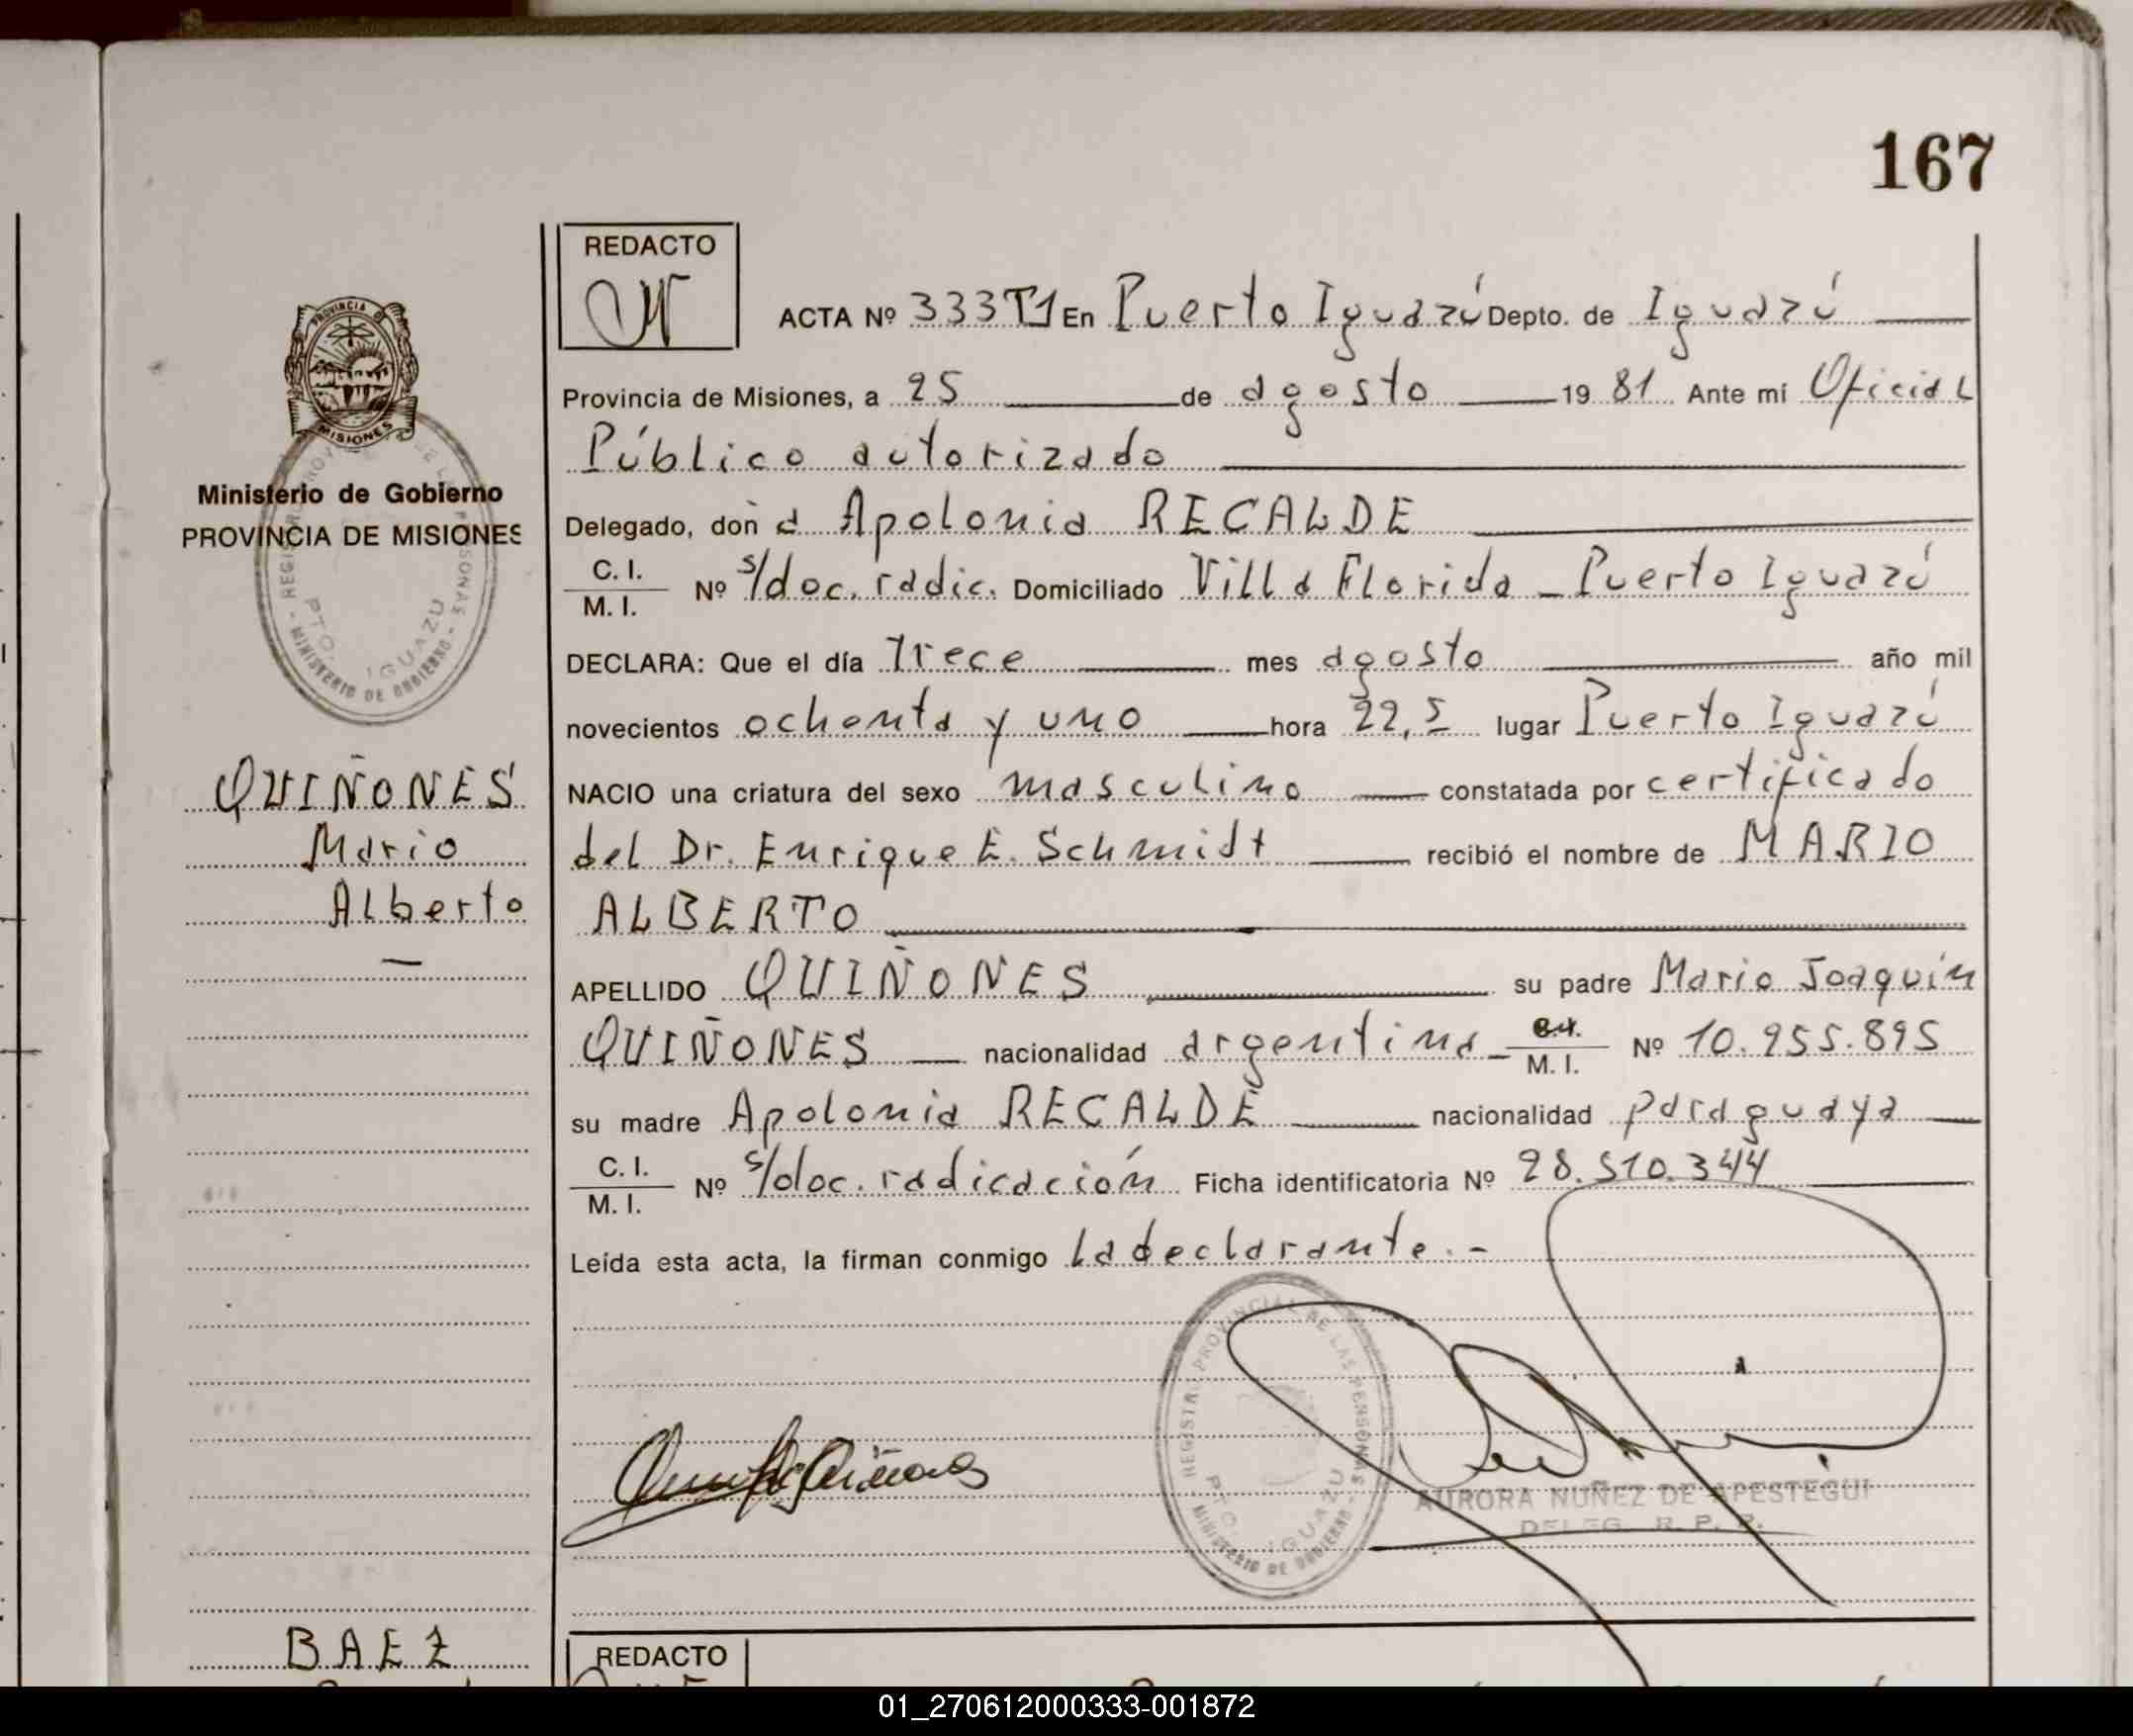 167
REDACTO
ACTA Nº 333T1 En Puerto Iguazú Depto. de Iguazú
Provincia de Misiones, a 25 de agosto 1981 Ante mí Oficial
Público autorizado
Delegado, don a Apolonia RECALDE
C. I.
M. I.
Nº s/doc. radic. Domiciliado Villa Florida - Puerto Iguazú
DECLARA: Que el día Trece mes agosto año mil
novecientos ochenta y uno hora 22,5 lugar Puerto Iguazú
NACIO una criatura del sexo masculino constatada por certificado
del Dr. Enrique E. Schmidt recibió el nombre de MARIO
ALBERTO
APELLIDO QUIÑONES su padre Mario Joaquín
QUIÑONES nacionalidad argentina - M. I. Nº 10.955.895
su madre Apolonia RECALDE nacionalidad paraguaya
C. I.
M. I.
Nº s/doc. radicación Ficha identificatoria Nº 28.510.344
Leída esta acta, la firman conmigo la declarante.-
PROVINCIA D
MISIONES
Ministerio de Gobierno
PROVINCIA DE MISIONES
PTO. IGUAZU
MINISTERIO DE GOBIERNO
QUIÑONES
Mario
Alberto
REGISTRO PROVINCIAL DE LAS PERSONAS
PTO. IGUAZU
MINISTERIO DE GOBIERNO
AURORA NUÑEZ DE APESTEGUI
DELEG. R. P. P.
BAEZ
REDACTO
01_270612000333-001872